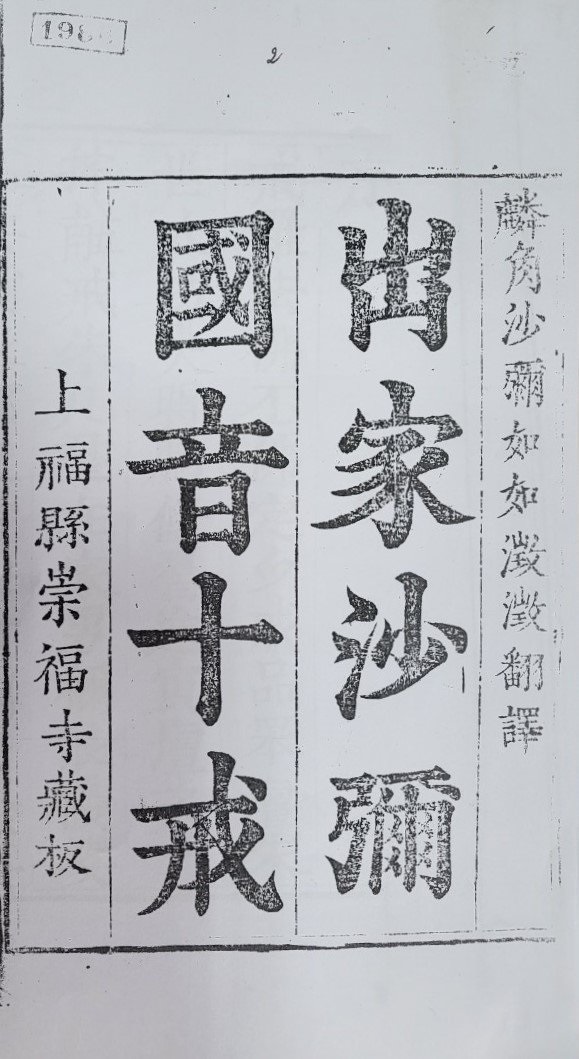 2
麟角沙彌如如澂澂翻譯
出家沙彌
國音十戒
上福縣崇福寺藏板